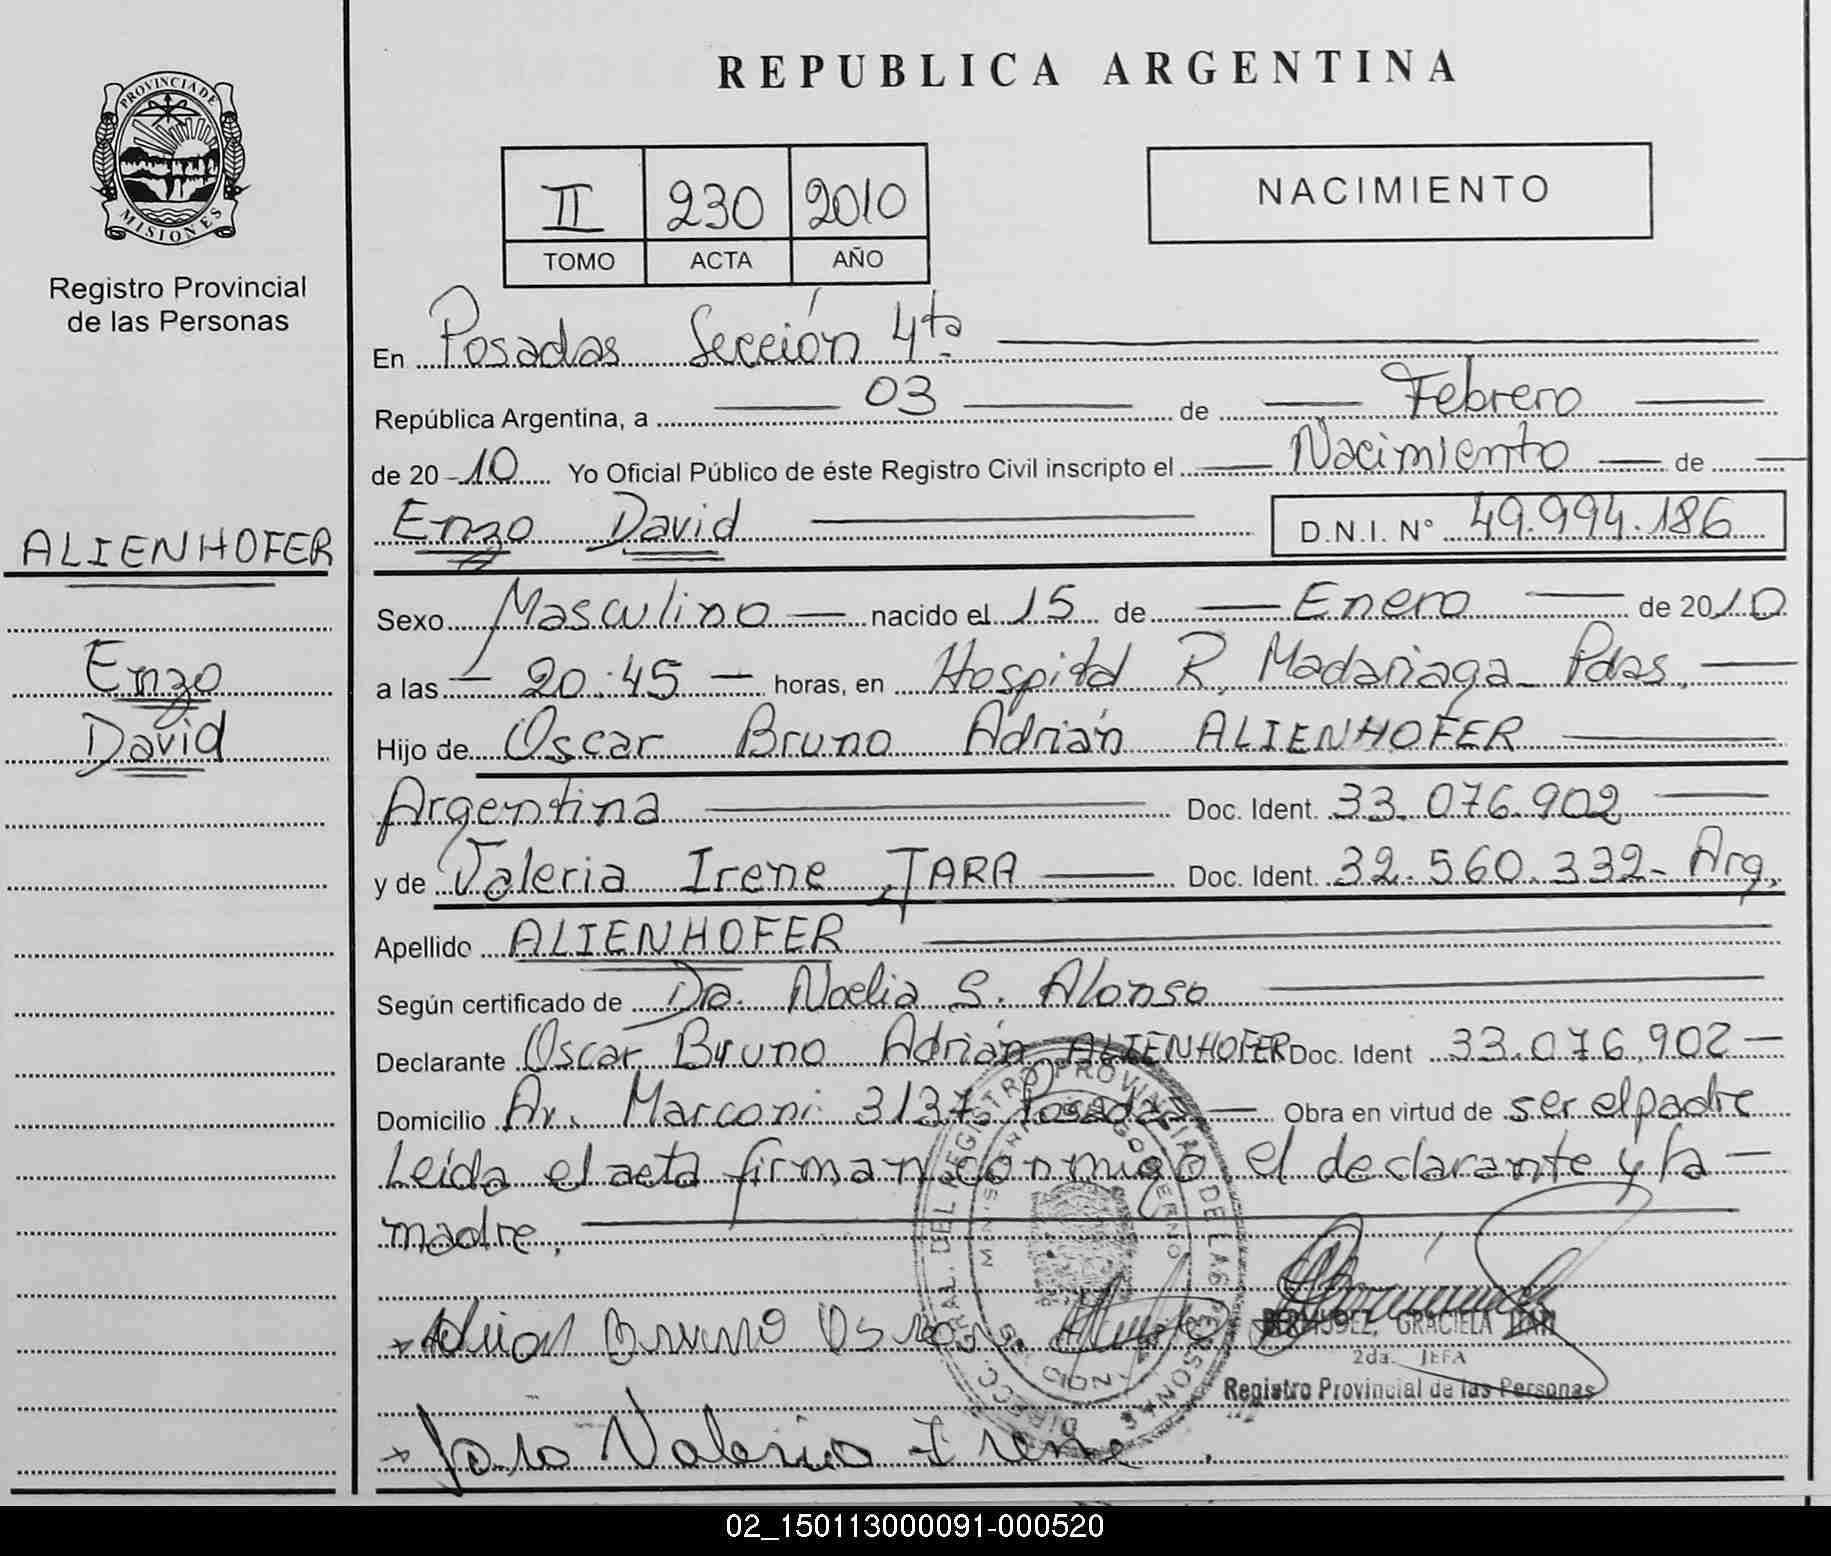 REPUBLICA ARGENTINA
PROVINCIA DE
MISIONES
Registro Provincial
de las Personas
II 230 2010
TOMO ACTA AÑO
NACIMIENTO
En Posadas Sección 4ta
República Argentina, a 03 de Febrero
de 20 10 Yo Oficial Público de éste Registro Civil inscripto el Nacimiento de
Enzo David D.N.I. N° 49.994.186
ALIENHOFER
Enzo
David
Sexo Masculino nacido el 15 de Enero de 2010
a las 20:45 horas, en Hospital R. Madariaga - Pdas.
Hijo de Oscar Bruno Adrián ALIENHOFER
Argentina Doc. Ident. 33.076.902
y de Valeria Irene JARA Doc. Ident. 32.560.332- Arg.
Apellido ALIENHOFER
Según certificado de Dra. Noelia S. Alonso
Declarante Oscar Bruno Adrián ALIENHOFER Doc. Ident 33.076.902
Domicilio Av. Marconi 3137 Posadas Obra en virtud de ser el padre
Leída el acta firman conmigo el declarante y la
madre.
Bruno
GRACIELA
2da. JEFA
Registro Provincial de las Personas
Jara Valeria Irene
02_150113000091-000520